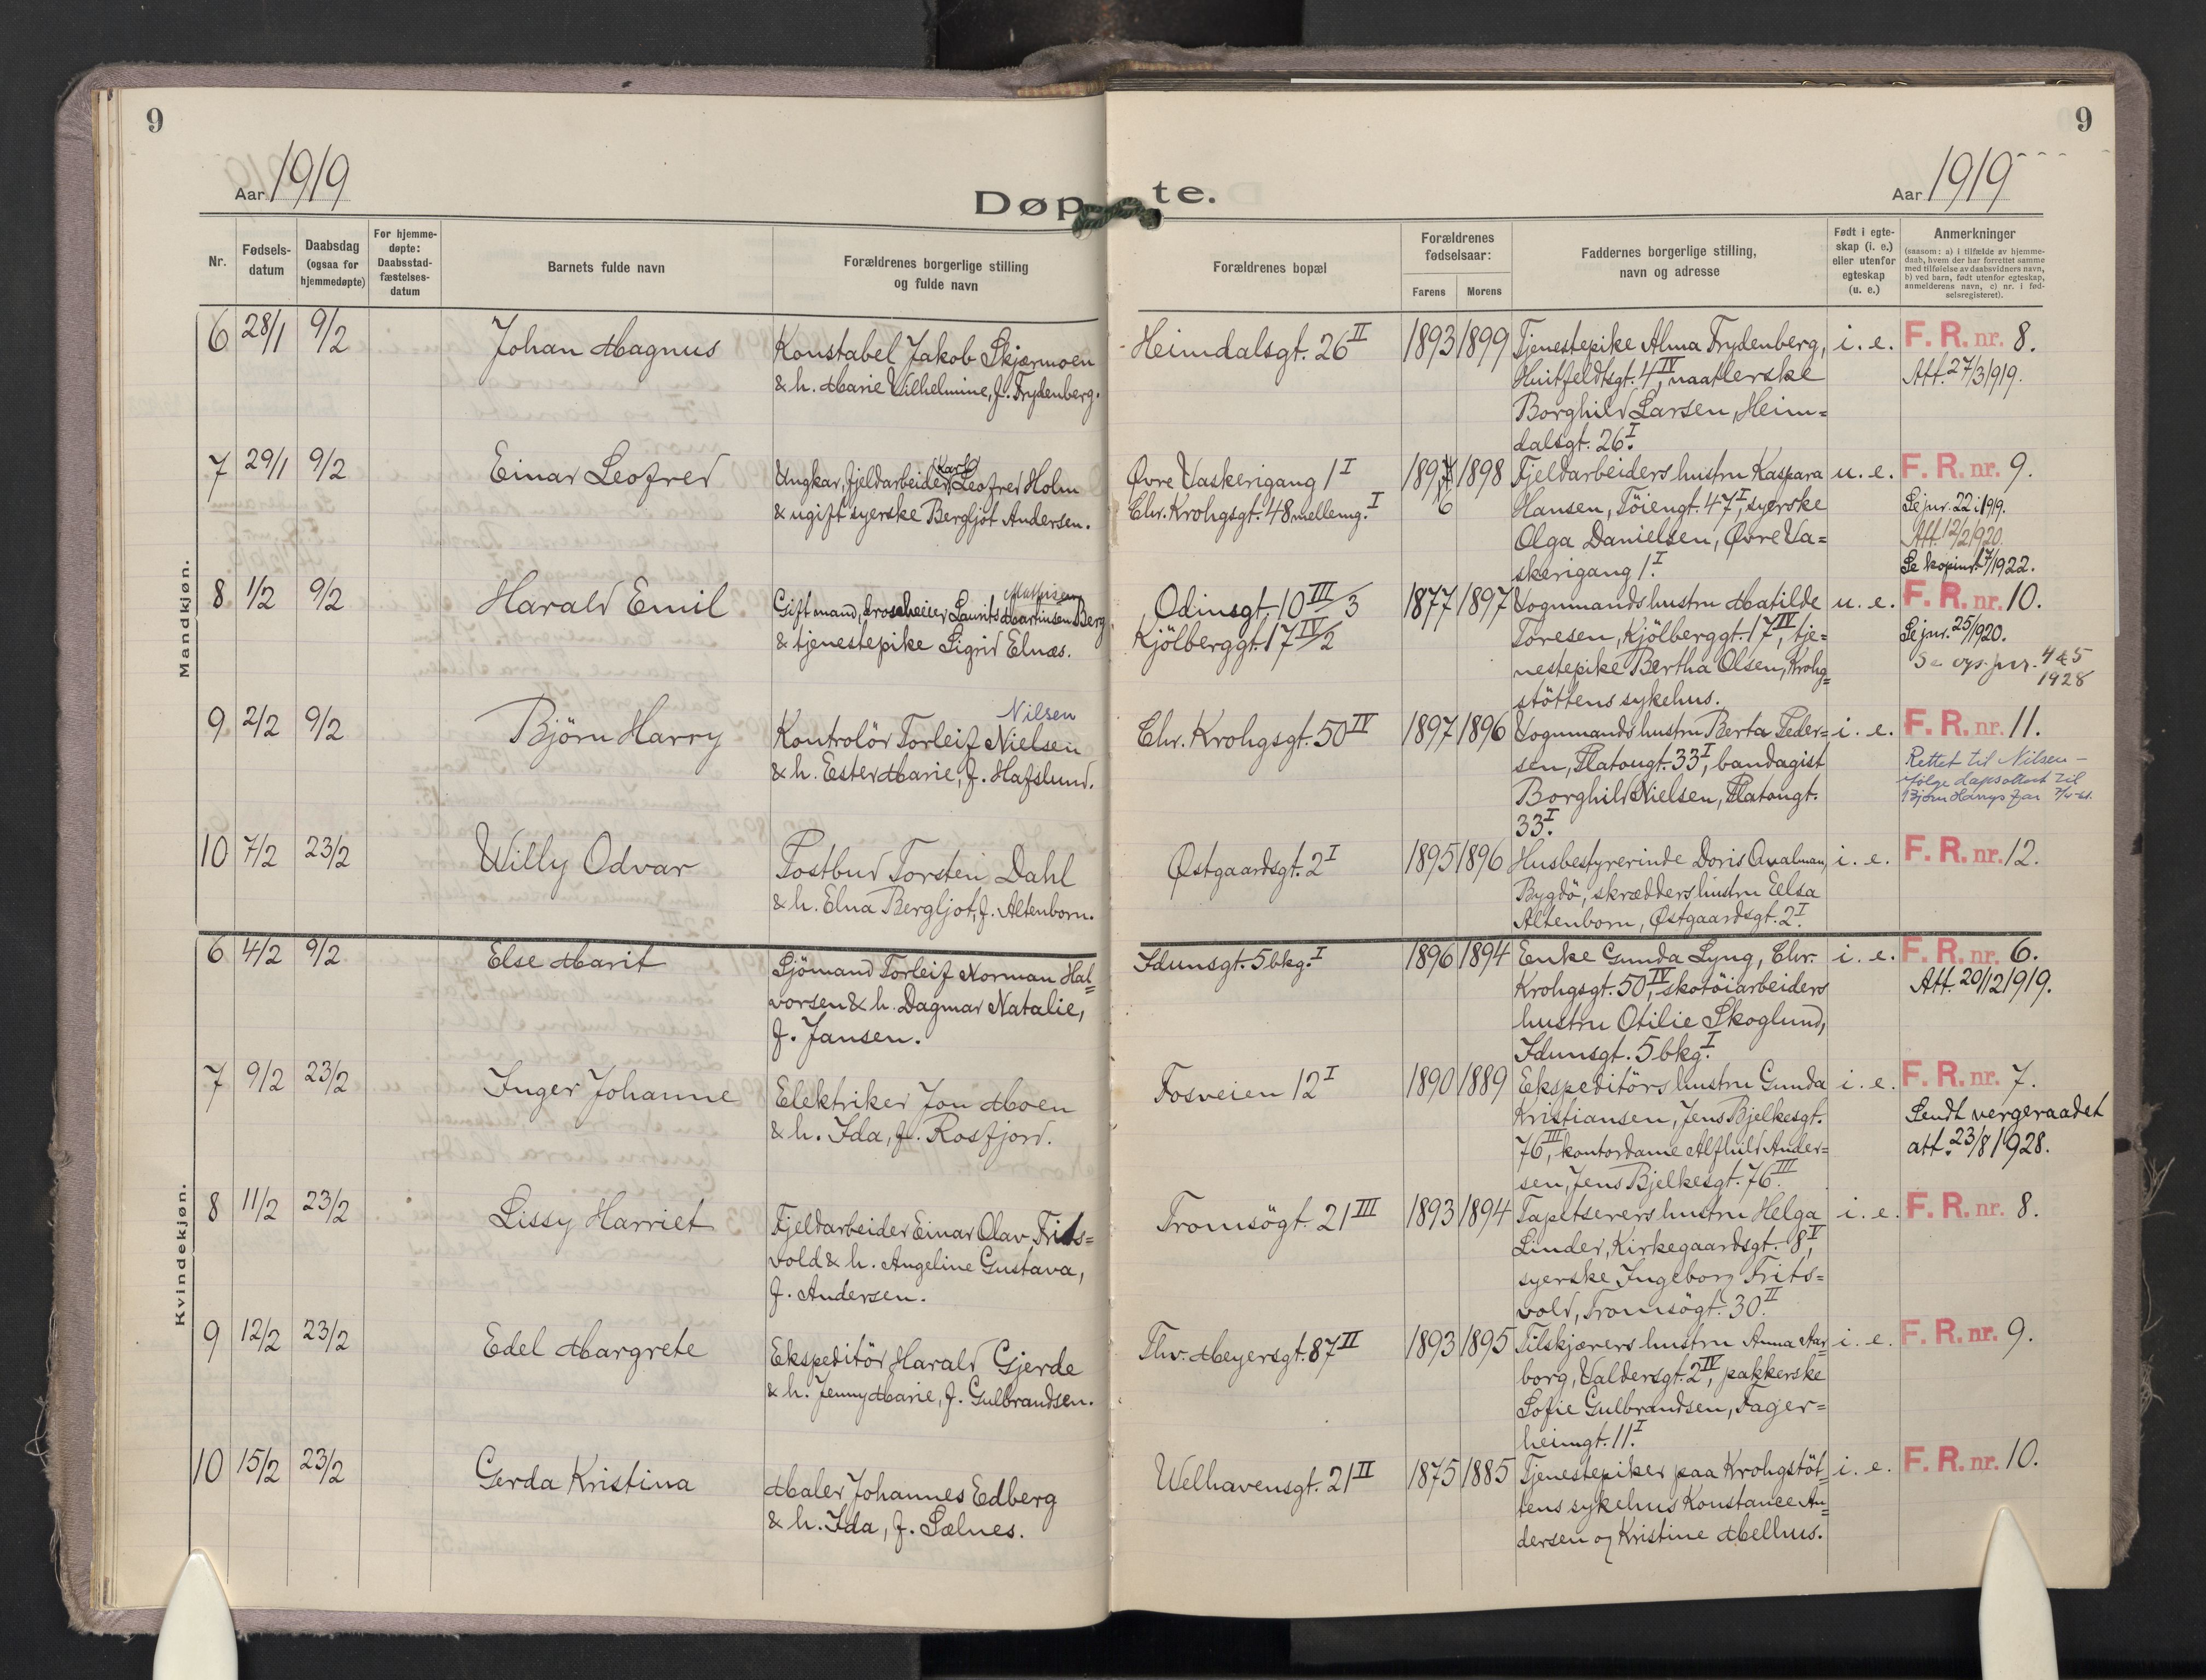 9
9
Aar 1919
Døp te.
Aar 1919
Nr.
Fødsels-
datum
Daabsdag
(ogsaa for
hjemmedøpte)
For hjemme-
døpte:
Daabsstad-
fæstelses-
datum
Barnets fulde navn
Forældrenes borgerlige stilling
og fulde navn
Forældrenes bopæl
Forældrenes
fødselsaar:
Farens
Morens
Faddernes borgerlige stilling,
navn og adresse
Født i egte-
skap (i. e.)
eller utenfor
egteskap
(u. e.)
Anmerkninger
(saasom: a) i tilfælde av hjemme-
daab, hvem der har forrettet samme
med tilføielse av daabsvidners navn,
b) ved barn, født utenfor egteskap,
anmelderens navn, c) nr. i fød-
selsregisteret).
Mandkjøn.
6 28/1 9/2 Johan Magnus
Konstabel Jakob Skjærmoen
& h. Marie Wilhelmine, f. Frydenberg.
Heimdalsgt. 26 II
1893 1899
Tjenestepike Alma Frydenberg,
Huitfeldtsgt. 4 IV, naatlerske
Borghild Larsen, Heim=
dalsgt. 26 I.
i. e.
F. R. nr. 8.
Att. 27/3 1919.
7 29/1 9/2 Einar Leofred
Karl
Ungkar, fjeldarbeider Leofred Holm
& ugift syerske Bergljot Andersen.
Øvre Vaskerigang 1 I
Chr. Krohgsgt. 48 mellemg. I
1897 1898
6
Fjeldarbeiders hustru Kaspara
Hansen, Töiengt. 47 I, syerske
Olga Danielsen, Øvre Va=
skerigang 1 I.
u. e.
F. R. nr. 9.
Se jnr. 22 i 1919.
Att. 12/2 1920.
Se kopinr. 17/1922.
8 1/2 9/2 Harald Emil
Mathisen
Gift mand, droscheeier Laurits Martinsen Berg
& tjenestepike Sigrid Elnæs.
Odinsgt. 10 III/3
Kjölberggt. 17 IV/2
1877 1897
Vognmands hustru Matilde
Toresen, Kjölberggt. 17 IV, tje=
nestepike Bertha Olsen, Krohg=
stöttens sykehus.
u. e.
F. R. nr. 10.
Se jnr. 25/1920.
Se ogs. jnr. 445
1928
9 2/2 9/2 Björn Harry
Nilsen
Kontrolör Torleif Nielsen
& h. Ester Marie, f. Hafslund.
Chr. Krohgsgt. 50 IV
1897 1896
Vognmands hustru Berta Peder=
sen, Platougt. 33 I, bandagist
Borghild Nielsen, Platougt.
33 I.
i. e.
F. R. nr. 11.
Rettet til Nilsen –
ifölge dåpsattest til
Bjørn Harrys far
10 7/2 23/2 Willy Odvar
Postbud Torstein Dahl
& h. Elna Bergljot, f. Altenborn.
Østgaardsgt. 2 I
1895 1896
Husbestyrerinde Doris Qvalman,
Bygdö, skrædders hustru Eelsa
Altenborn, Østgaardsgt. 2 I.
i. e.
F. R. nr. 12.
Kvindekjøn.
6 4/2 9/2 Else Marit
Sjömand Torleif Norman Hal=
vorsen & h. Dagmar Natalie,
f. Jansen.
Idunsgt. 5 bkg. I
1896 1894
Enke Gunda Lyng, Chr.
Krohgsgt. 50 IV, skotöiarbeiders
hustru Otilie Skoglund,
Idunsgt. 5 bkg. I
i. e.
F. R. nr. 6.
Att. 20/12 1919.
7 9/2 23/2 Inger Johanne
Elektriker Jon Moen
& h. Ida, f. Rosfjord.
Fosveien 12 I
1890 1889
Ekspeditörs hustru Gunda
Kristiansen, Jens Bjelkesgt.
76 III, kontordame Alfhild Ander=
sen, Jens Bjelkesgt. 76 III.
i. e.
F. R. nr. 7.
Sendt vergeraadet
att. 23/8 1928.
8 11/2 23/2 Lissy Harriet
Fjeldarbeider Einar Olav Frits=
vold & h. Angeline Gustava,
f. Andersen.
Tromsögt. 21 III
1893 1894
Tapetserers hustru Helga
Linder, Kirkegaardsgt. 8 V,
syerske Ingeborg Frits=
vold, Tromsögt. 30 II.
i. e.
F. R. nr. 8.
9 12/2 23/2 Edel Margrete
Ekspeditör Harald Gjerde
& h. Jenny Marie, f. Gulbrandsen.
Thv. Meyersgt. 87 II
1893 1895
Tilskjærers hustru Anna Aar=
borg, Valdersgt. 2 IV, pakkerske
Sofie Gulbrandsen, Fager=
heimgt. 11 I.
i. e.
F. R. nr. 9.
10 15/2 23/2 Gerda Kristina
Maler Johannes Edberg
& h. Ida, f. Sælnes.
Welhavensgt. 21 II
1875 1885
Tjenestepiker paa Krohgstöt=
tens sykehus Konstance An=
dersen og Kristine Melhus.
i. e.
F. R. nr. 10.